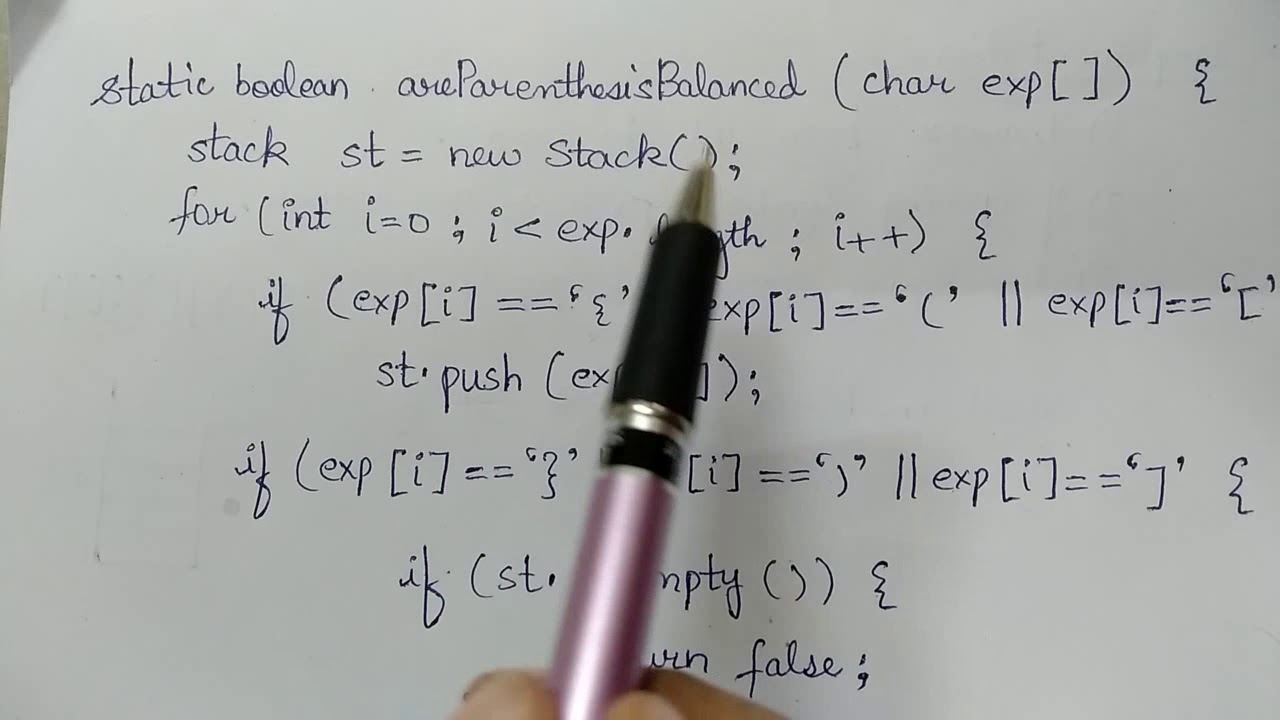 static boolean areParenthesisBalanced (char exp[]) {
stack st = new Stack();
for (int i=0 ; i < exp. ; i++) {
if (exp[i] == ‘{’ exp[i]==‘(’ || exp[i]==‘[’
st.push (exp ]);
if (exp[i]==‘}’ [i] ==‘)’ || exp[i]==‘]’ {
if (st. ()) {
false;